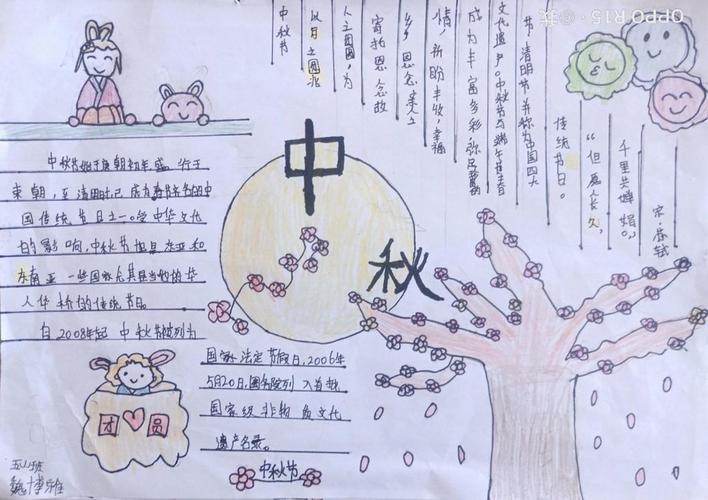 中秋节
以月之圆兆
人之团圆,为
寄托思念故
乡,思念亲人之
情,祈盼丰收、幸福,
成为丰富多彩、弥足珍贵的
文化遗产。中秋节与端午节、春
节、清明节并称为中国四大
传统节日。
“但愿人长久,
千里共婵娟。”
宋·苏轼
中
秋
中秋节始于唐朝初年,盛行于
宋朝,至清时,已成为
国传统节日之一。受中华文化
的影响,中秋节也是东亚和
东南亚一些国家尤其是当地的华
人华侨的传统节日。
自2008年起中秋节被列为
国家法定节假日,2006年
5月20日,国务院列入首批
国家级非物质文化
遗产名录。
中秋节
团圆
五(1)班
魏博雅
OPPO R15